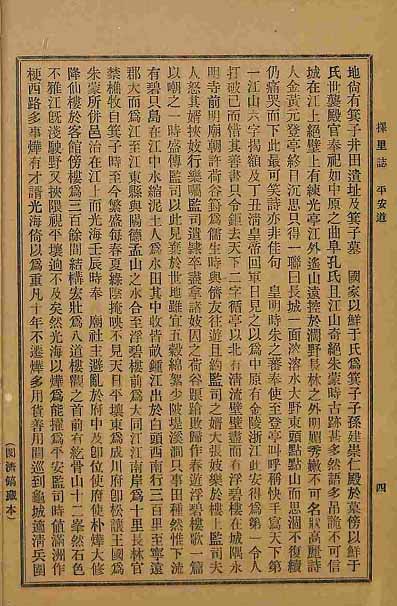 擇里誌 平安道 四
地尙有箕子井田遺址及箕子墓 國家以鮮于氏爲箕子子孫建崇仁殿於墓傍以鮮于
氏世襲殿官奉祀如中原之曲阜孔氏且江山奇絕朱蒙時古跡甚多然語多吊詭不可信
城在江上絕壁上有練光亭江外遙山遠控於濶野長林之外明媚秀嫩不可名狀高麗詩
人金黃元登亭終日沉思只得一聯曰長城一面溶溶水大野東頭點點山而思涸不復續
仍痛哭而下此最可笑詩亦非佳句 皇明時朱之蕃奉使至登亭叫呼稱快手寫天下第
一江山六字揭額及丁丑淸皇帝回軍日見之以爲中原有金陵浙江此安得爲第一令人
打破已而惜其善書只令鉅去天下二字循亭以北有淸流壁壁盡而有浮碧樓在城隅永
明寺前明廟時許荷谷篈爲儒生時與儕友往遊且約監司之婿大張妓樂於樓上監司夫
人怒其婿挾妓行樂囑監司遣隷卒盡拿諸妓囚之荷谷踉蹌敗歸作春游浮碧樓歌一篇
以嘲之一時盛傳監司以此見棄於世地雖宜五穀綿絮少陂堤溪澗只事田種然惟下流
有碧只島在江中水綿泥土人爲水田其中收皆畝鍾江出於白頭西南行三百里至寧遠
郡大而爲江至江東縣與陽德孟山之水合至浮碧樓前爲大同江江南岸爲十里長林官
禁樵牧自箕子時至今繁盛每春夏綠陰掩映不見天日平壤東爲成川府卽松讓王國爲
朱蒙所倂邑治在江上而光海壬辰時奉 廟社主避亂於府中及卽位使府使朴燁大修
降仙樓於客館傍樓爲三百餘間結構宏壯爲八道樓觀之首前有紇骨山十二峯然石色
不雅江旣淺駛野又挾隈視平壤遜不及矣然光海以燁爲能擢爲平安監司時値滿洲作
梗西路多事燁有才諝光海倚以爲重凡十年不遷燁多用貨善用間巡到龜城適淸兵圍
(閔濟鎬藏本)